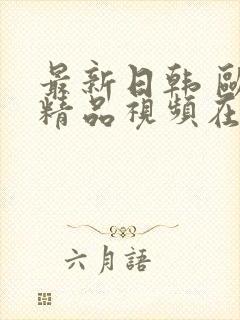 最新日韩 歐
精品視頻在
六月語